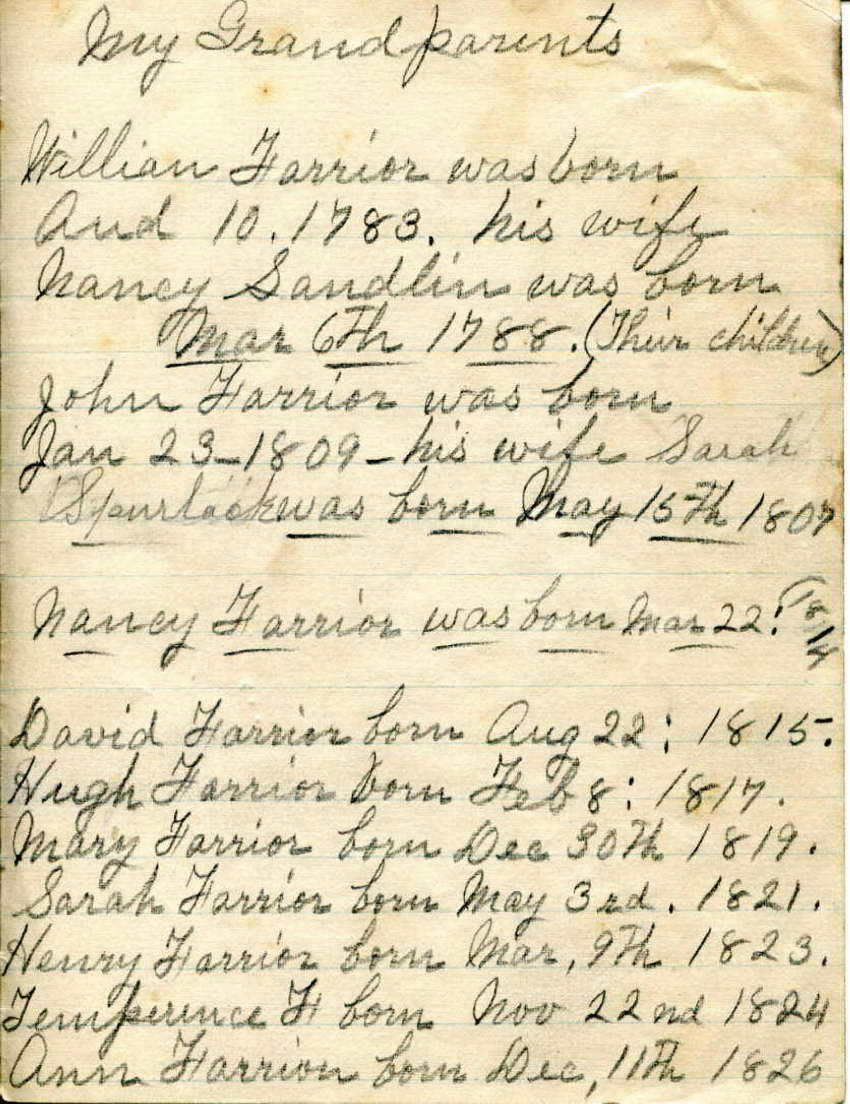 My Grandparents
Willian Farrior was born
Aud 10. 1783. his wife
Nancy Sandlin was born
Mar 6Th 1788. (Their children)
John Farrior was born
Jan 23-1809-his wife Sarah
Spurlock was born May 15Th 1807
Nancy Farrior was born Mar 22: 1814
David Farrior born Aug 22: 1815.
Hugh Farrior born Feb 8: 1817.
Mary Farrior born Dec 30Th 1819.
Sarah Farrior born May 3rd. 1821.
Henry Farrior born Mar, 9Th 1823.
Temperence F born Nov 22nd 1824
Ann Farrior born Dec, 11Th 1826